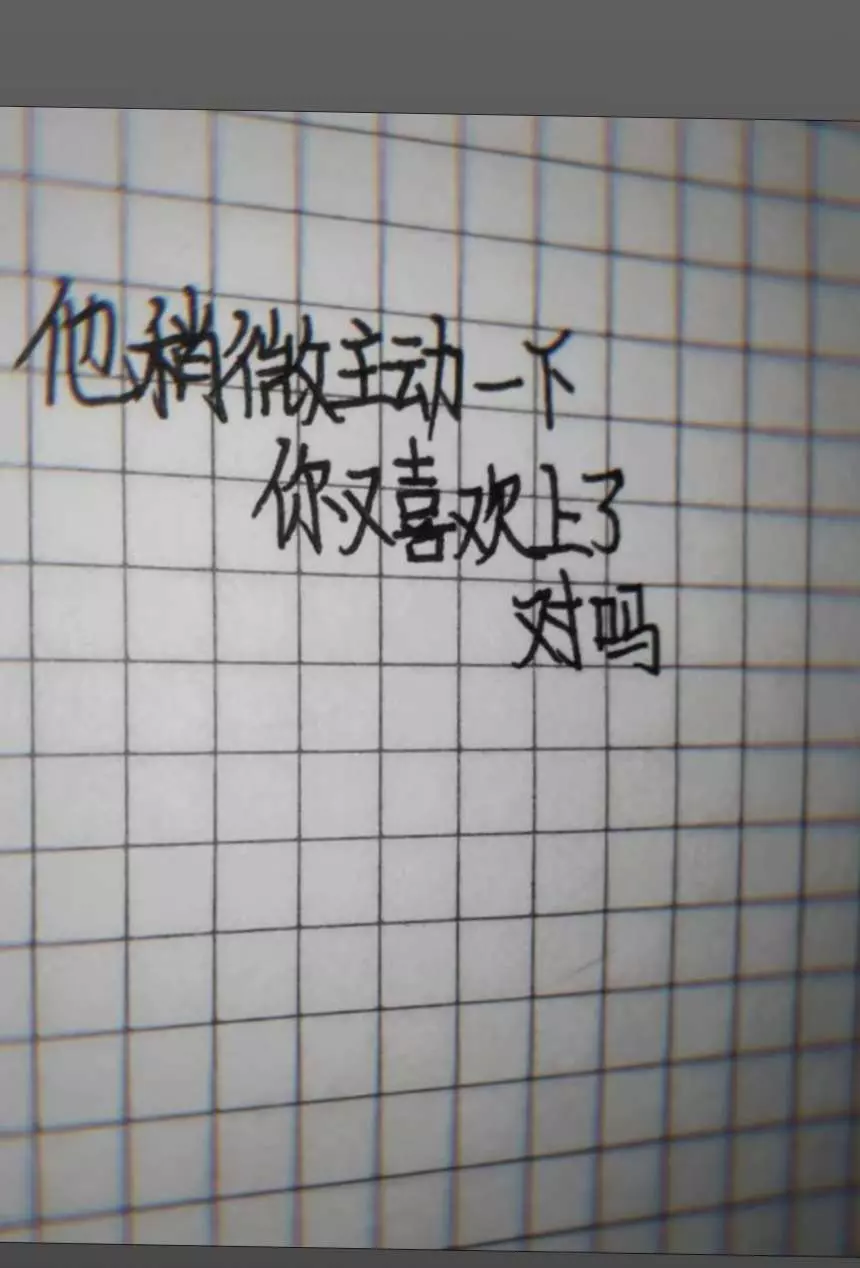 他稍微主动一下
你又喜欢上了
对吗